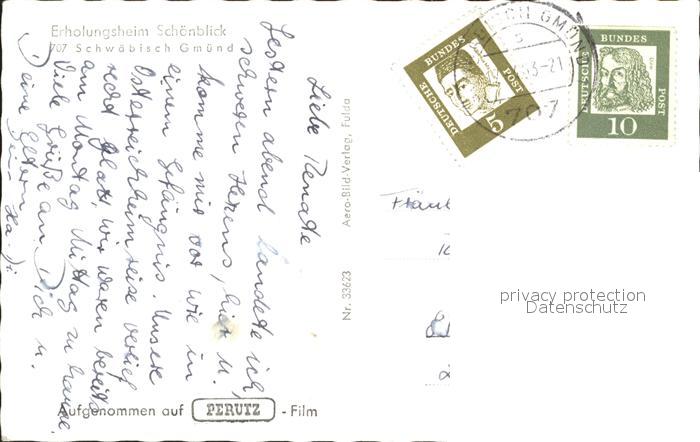 Erholungsheim Schönblick
707 Schwäbisch Gmünd
Liebe Renate
Gestern abend landete ich,
schweren Herzens, hier u.
komme mir vor wie in
einem Gefängnis. Unsere
Österreichheimreise verlief
recht glatt, wir waren bereits
am Montag Mittag zu Hause.
Viele Grüße an Dich u.
Deine Eltern
Aero-Bild-Verlag, Fulda
Nr. 33623
Aufgenommen auf PERUTZ - Film
DEUTSCHE BUNDES POST
5
DEUTSCHE BUNDES POST
10
GMÜN
707
Fräul
privacy protection
Datenschutz